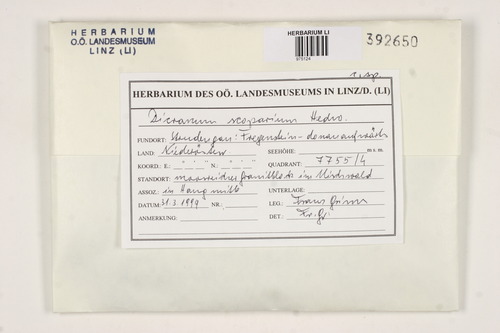 HERBARIUM
O.Ö. LANDESMUSEUM
LINZ (LI)
HERBARIUM LI
975124
392650
HERBARIUM DES OÖ. LANDESMUSEUMS IN LINZ/D. (LI)
Dicranum scoparium Hedw.
FUNDORT: Freyenstein - donauaufwärts
LAND: Niederösterr. SEEHÖHE: m s. m.
KOORD.: E: ° ' " N.: ° ' " QUADRANT: 7755/4
STANDORT: moosreicher Granitblock im Mischwald
ASSOZ.: in Hangmitte UNTERLAGE:
DATUM: 31.3.1999 NR.: LEG.: Franz Grims
ANMERKUNG: DET.: Fr. Gr.